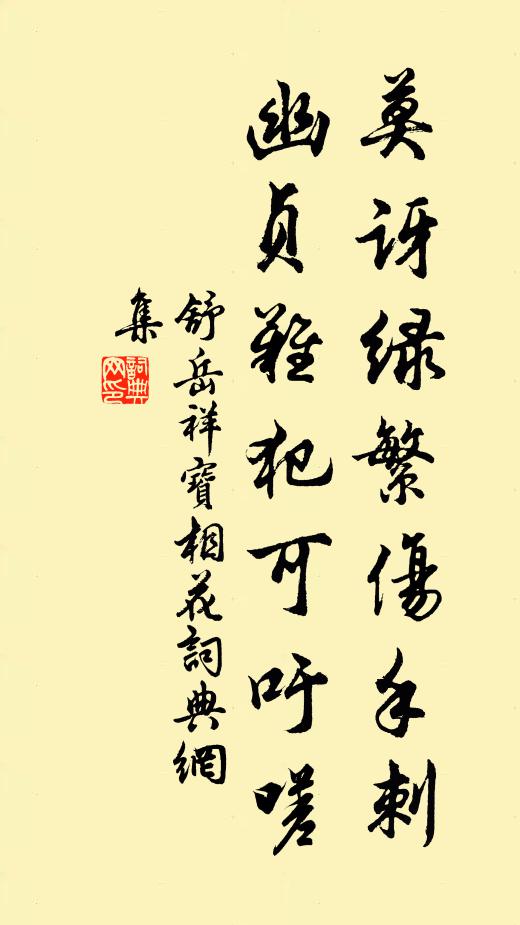 莫訝緑繁傷手刺
幽貞難犯可吁嗟
舒岳祥寶相花詞典網
集
詞典
网印